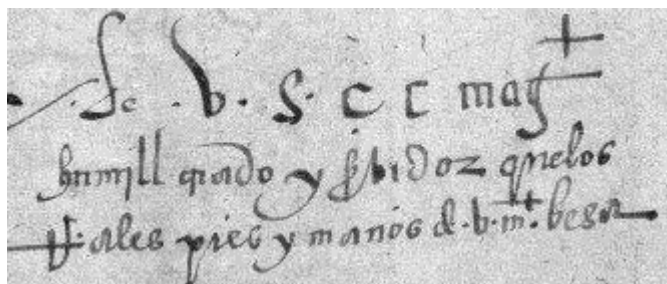 De .v. s. c c mag
humill criado y servidor que los
R.ales pies y manos de .v. mt. besa